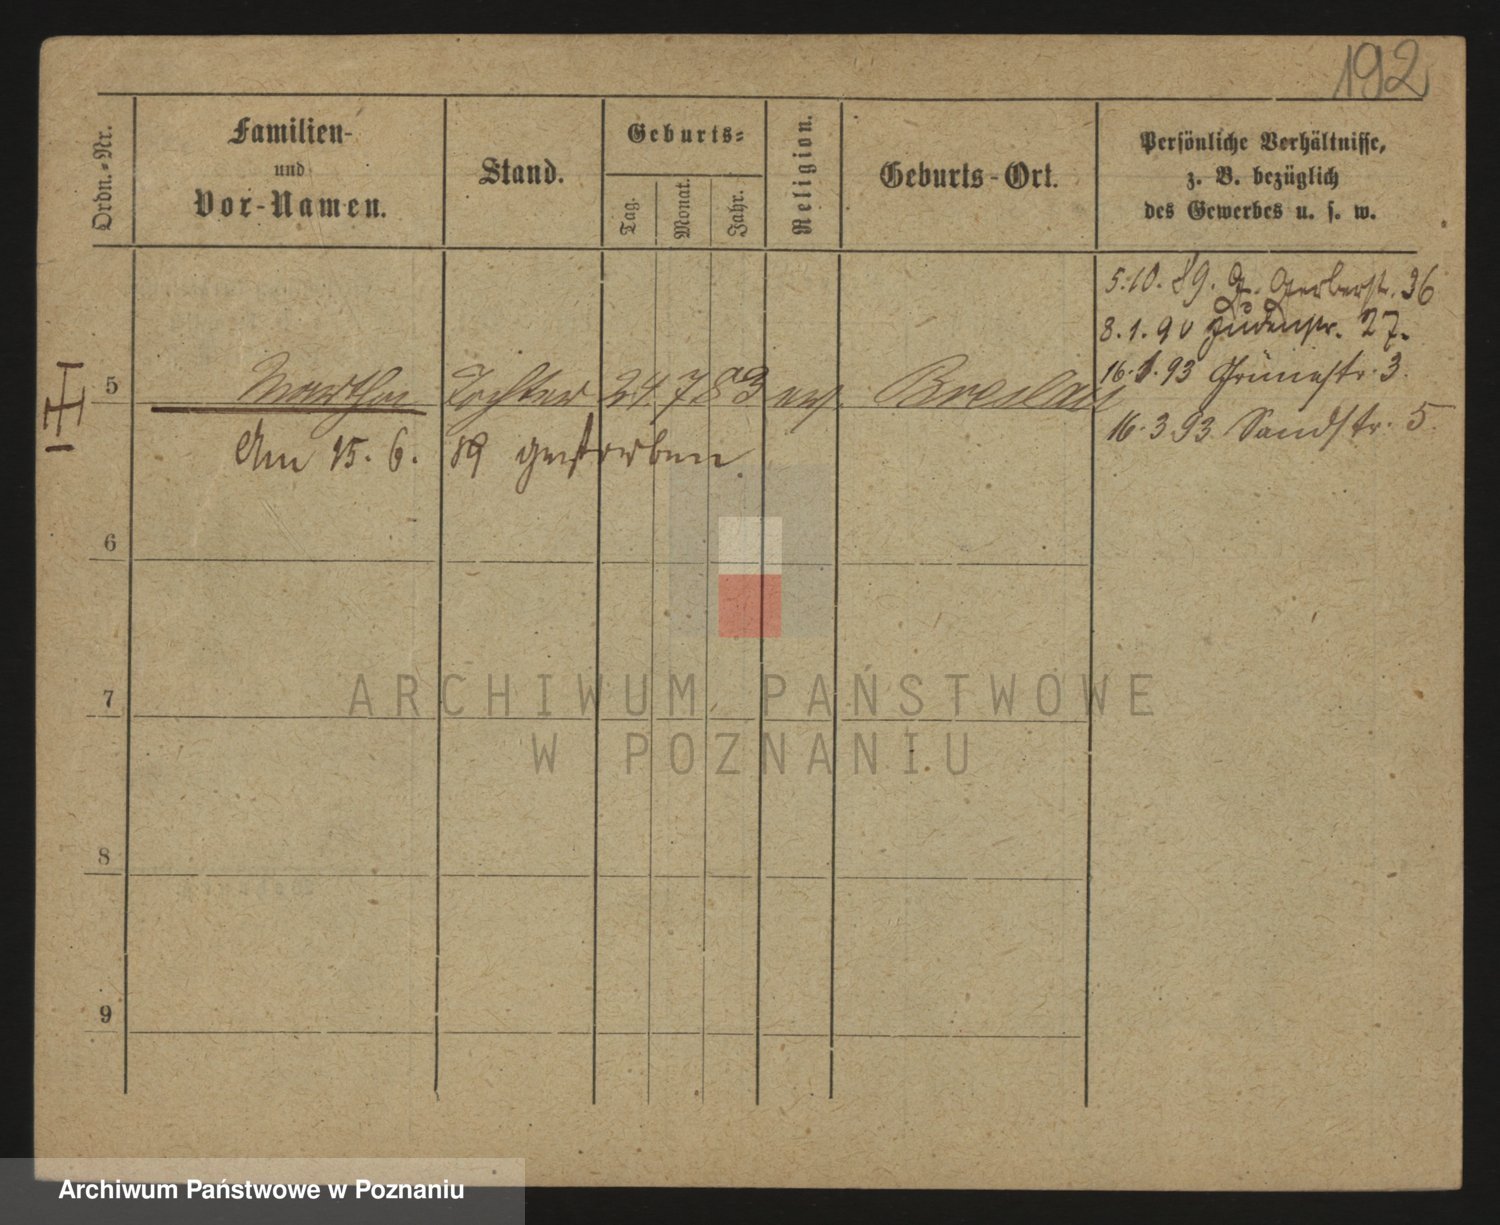 192
Ordn.-Nr.
Familien-
und
Vor-Namen.
Stand.
Geburts-
Tag.
Monat.
Jahr.
Religion.
Geburts-Ort.
Persönliche Verhältnisse,
z. B. bezüglich
des Gewerbes u. s. w.
5.10.89. G. Gerberstr. 36
8.1.90 Judenstr. 27.
16.1.93 Grünestr. 3.
16.3.93 Sandstr. 5.
5 Martha Tochter 24 7 83 ev. Breslau
Am 15. 6. 89 gestorben.
6
7
8
9
ARCHIWUM PAŃSTWOWE
W POZNANIU
Archiwum Państwowe w Poznaniu